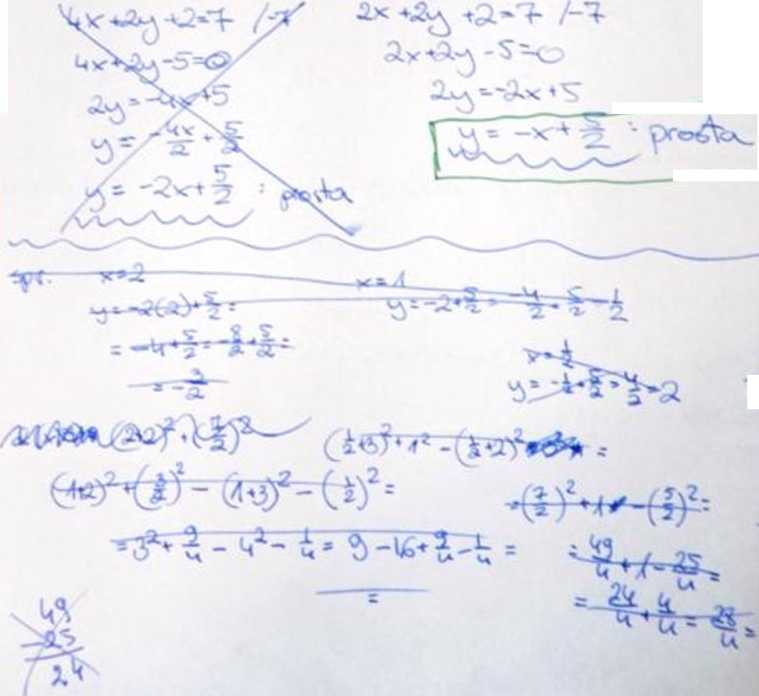 4x+2y+2=7 /-7
4x+2y-5=0
2y=-4x+5
y=-\frac{4x}{2}+\frac{5}{2}
y=-2x+\frac{5}{2} : prosta
2x+2y+2=7 /-7
2x+2y-5=0
2y=-2x+5
y=-x+\frac{5}{2} : prosta
spr. x=2
y=-2(2)+\frac{5}{2}=
=-4+\frac{5}{2}=-\frac{8}{2}+\frac{5}{2}=
=-\frac{3}{2}
x=1
y=-2+\frac{5}{2}=\frac{-4}{2}+\frac{5}{2}=\frac{1}{2}
x=\frac{1}{2}
y=-\frac{1}{2}+\frac{5}{2}=\frac{4}{2}=2
(2+2)^2+(\frac{7}{2})^2
(1+2)^2+(\frac{3}{2})^2-(1+3)^2-(\frac{1}{2})^2=
=3^2+\frac{9}{4}-4^2-\frac{1}{4}=9-16+\frac{9}{4}-\frac{1}{4}=
=
(\frac{1}{2}+3)^2+1^2-(\frac{1}{2}+2)^2 =
=(\frac{7}{2})^2+1-(\frac{5}{2})^2=
=\frac{49}{4}+1-\frac{25}{4}=
=\frac{24}{4}+\frac{4}{4}=\frac{28}{4}=
49
-25
24